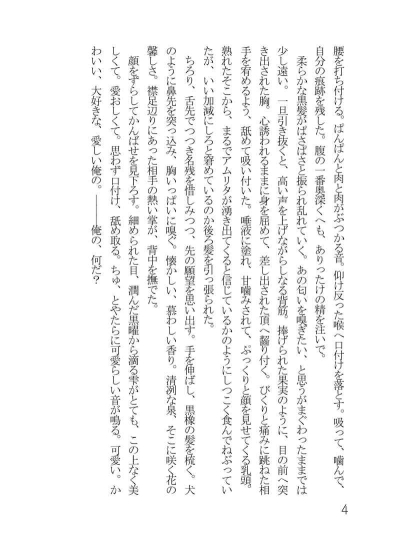 腰を打ち付ける。ぱんぱんと肉と肉がぶつかる音。仰け反った喉へ口付けを落とす。吸って、噛んで、
自分の痕跡を残した。腹の一番奥深くへも、ありったけの精を注いで。
柔らかな黒髪がばさばさと振られ乱れていく。あの匂いを嗅ぎたい、と思うがまぐわったままでは
少し遠い。一旦引き抜くと、高い声を上げながらしなる背筋。捧げられた果実のように、目の前へ突
き出された胸。心誘われるままに身を屈めて、差し出された頂へ齧り付く。びくりと痛みに跳ねた相
手を宥めるよう、舐めて吸い付いた。唾液に塗れ、甘噛みされて、ぷっくりと顔を見せてくる乳頭。
熟れたそこから、まるでアムリタが湧き出てくると信じているかのようにしつこく食んでねぶってい
たが、いい加減にしろと窘めているのか後ろ髪を引っ張られた。
ちろり、舌先でつつき名残を惜しみつつ、先の願望を思い出す。手を伸ばし、黒檬の髪を梳く。犬
のように鼻先を突っ込み、胸いっぱいに嗅ぐ。懐かしい、慕わしい香り。清冽な泉、そこに咲く花の
馨しさ。襟足辺りにあった相手の熱い掌が、背中を撫でた。
顔をずらしてかんばせを見下ろす。細められた目、潤んだ黒曜から滴る雫がとても、この上なく美
しくて。愛おしくて。思わず口付け、舐め取る。ちゅ、とやたらに可愛らしい音が鳴る。可愛い。か
わいい、大好きな、愛しい俺の。――俺の、何だ？
4